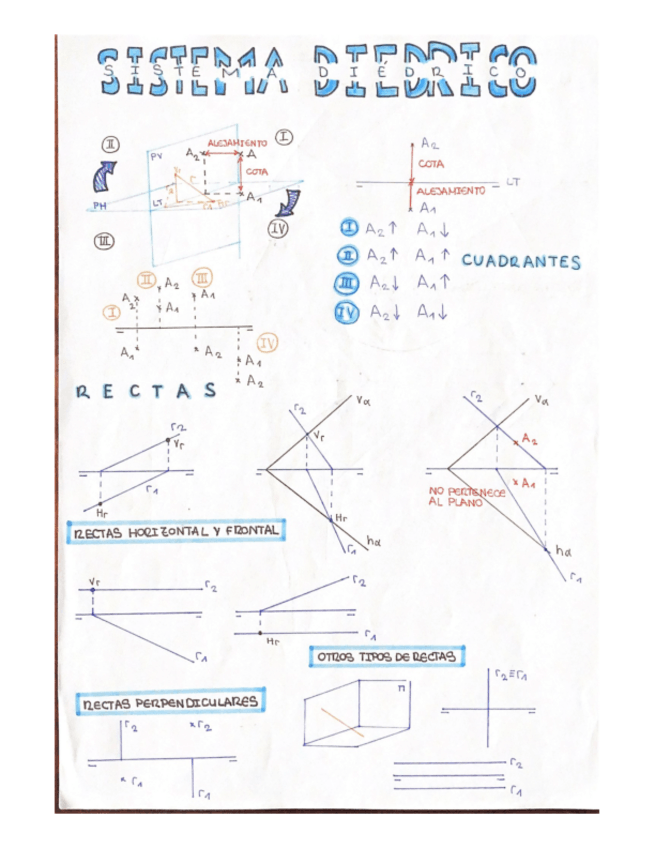 SISTEMA DIÉDRICO
II
ALEJAMIENTO
I
PV
A2
A
COTA
A1
PH
LT
III
IV
A2
COTA
LT
ALEJAMIENTO
A1
I A2↑ A1↓
II A2↑ A1↑
III A2↓ A1↑
IV A2↓ A1↓
CUADRANTES
II
III
I
A2
A2
A1
A1
A1
A2
IV
A1
A2
RECTAS
r2
Vr
r1
Hr
r2
Vα
Vr
Hr
r1
hα
r2
Vα
A2
A1
NO PERTENECE
AL PLANO
hα
r1
RECTAS HORIZONTAL Y FRONTAL
Vr
r2
r1
r2
r1
Hr
OTROS TIPOS DE RECTAS
r2≡r1
RECTAS PERPENDICULARES
r2
r2
r1
r1
r2
r1